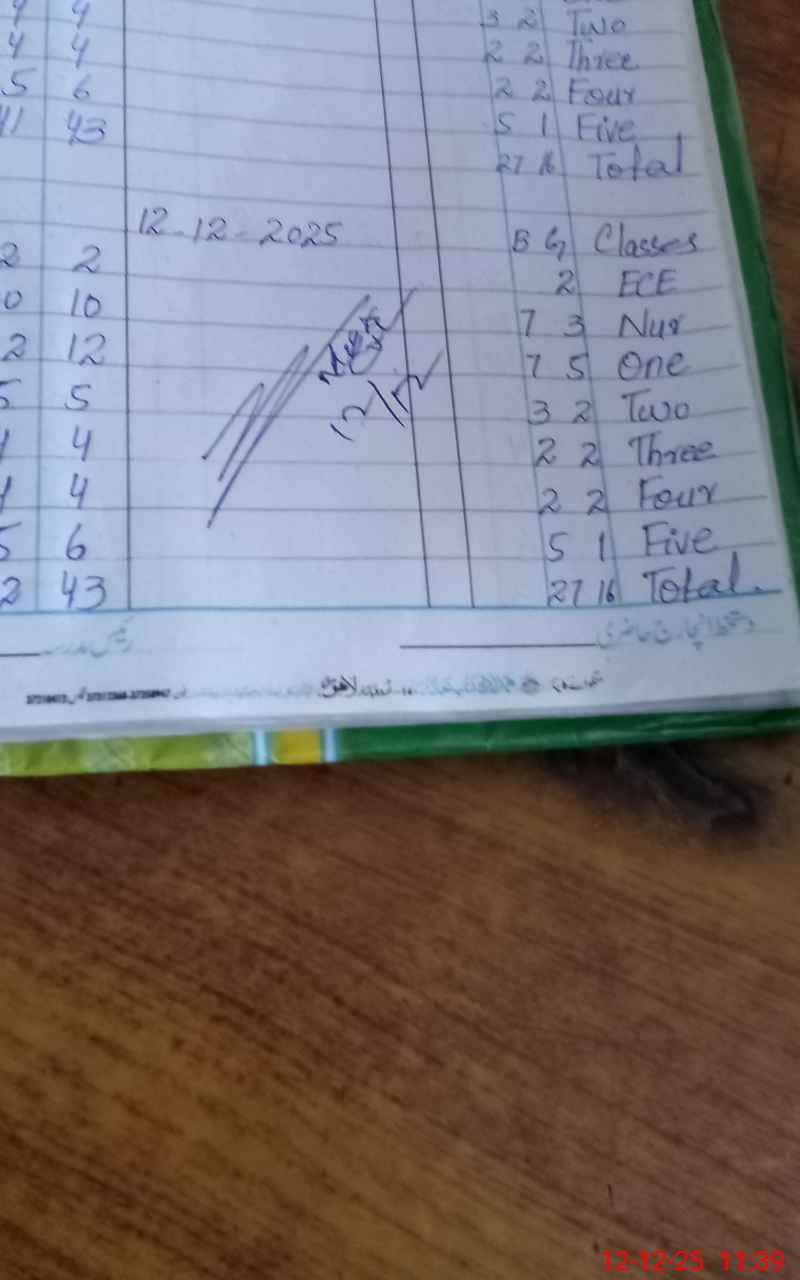 4 4 3 2 Two
4 4 2 2 Three
5 6 2 2 Four
41 43 5 1 Five
27 16 Total
12-12-2025
B G Classes
2 2 2 ECE
0 10 7 3 Nur
2 12 7 5 One
5 5 3 2 Two
4 2 2 Three
4 2 2 Four
5 6 5 1 Five
2 43 27 16 Total.
12/12
رئیس مدرسہ دستخط انچارج حاضری
لاہور
12-12-25 11:39